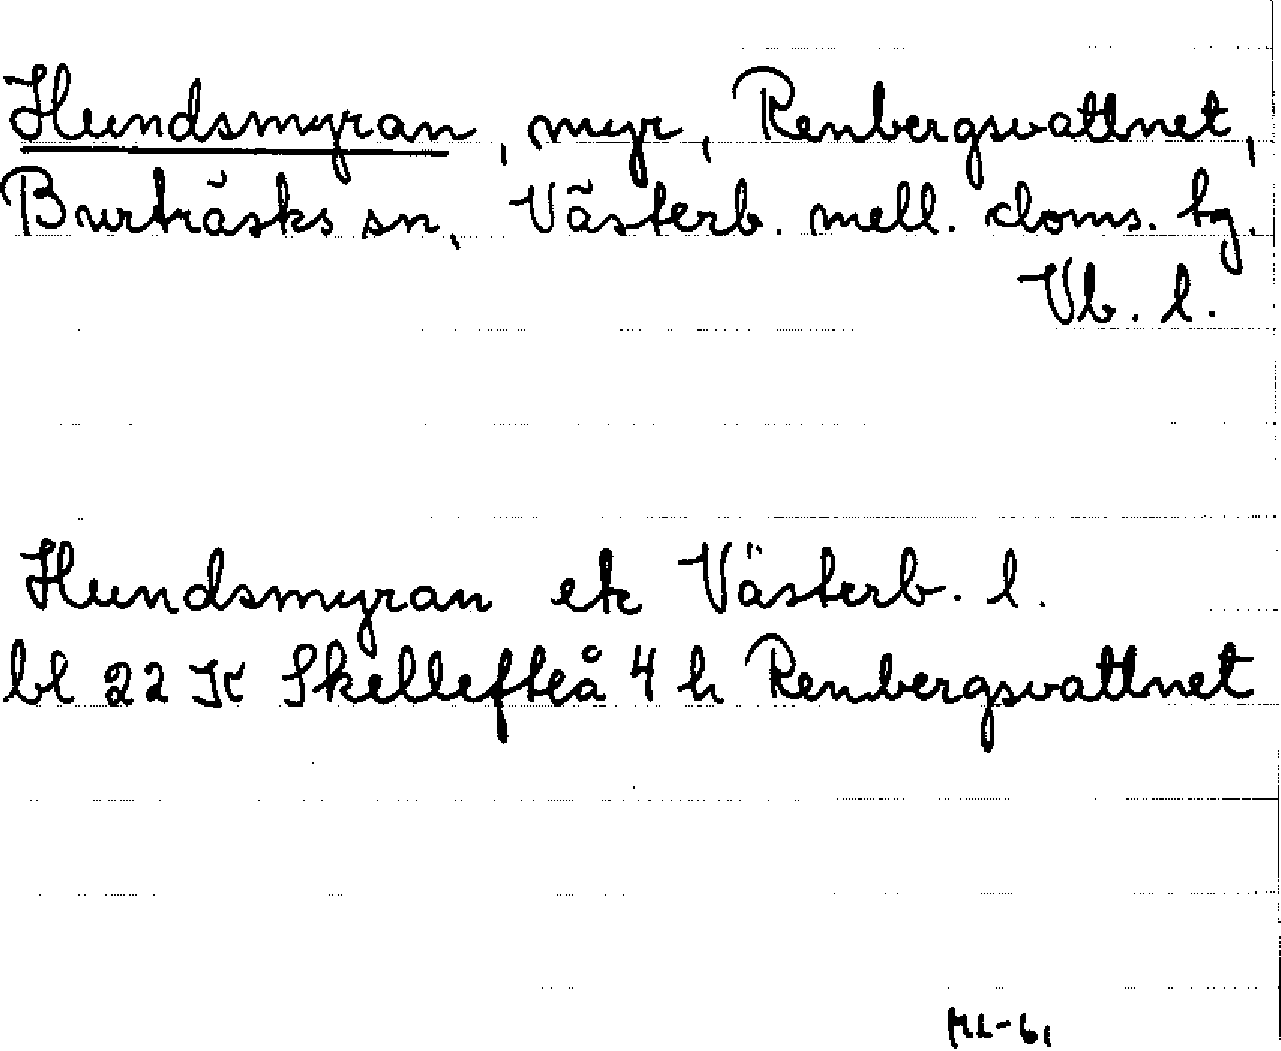 Hundsmyran, myr, Renbergsvattnet,
Burträsks sn, Västerb. mell. doms. tg.
Vb. l.
Hundsmyran ek Västerb. l.
bl 22 K Skellefteå 4 h Renbergsvattnet